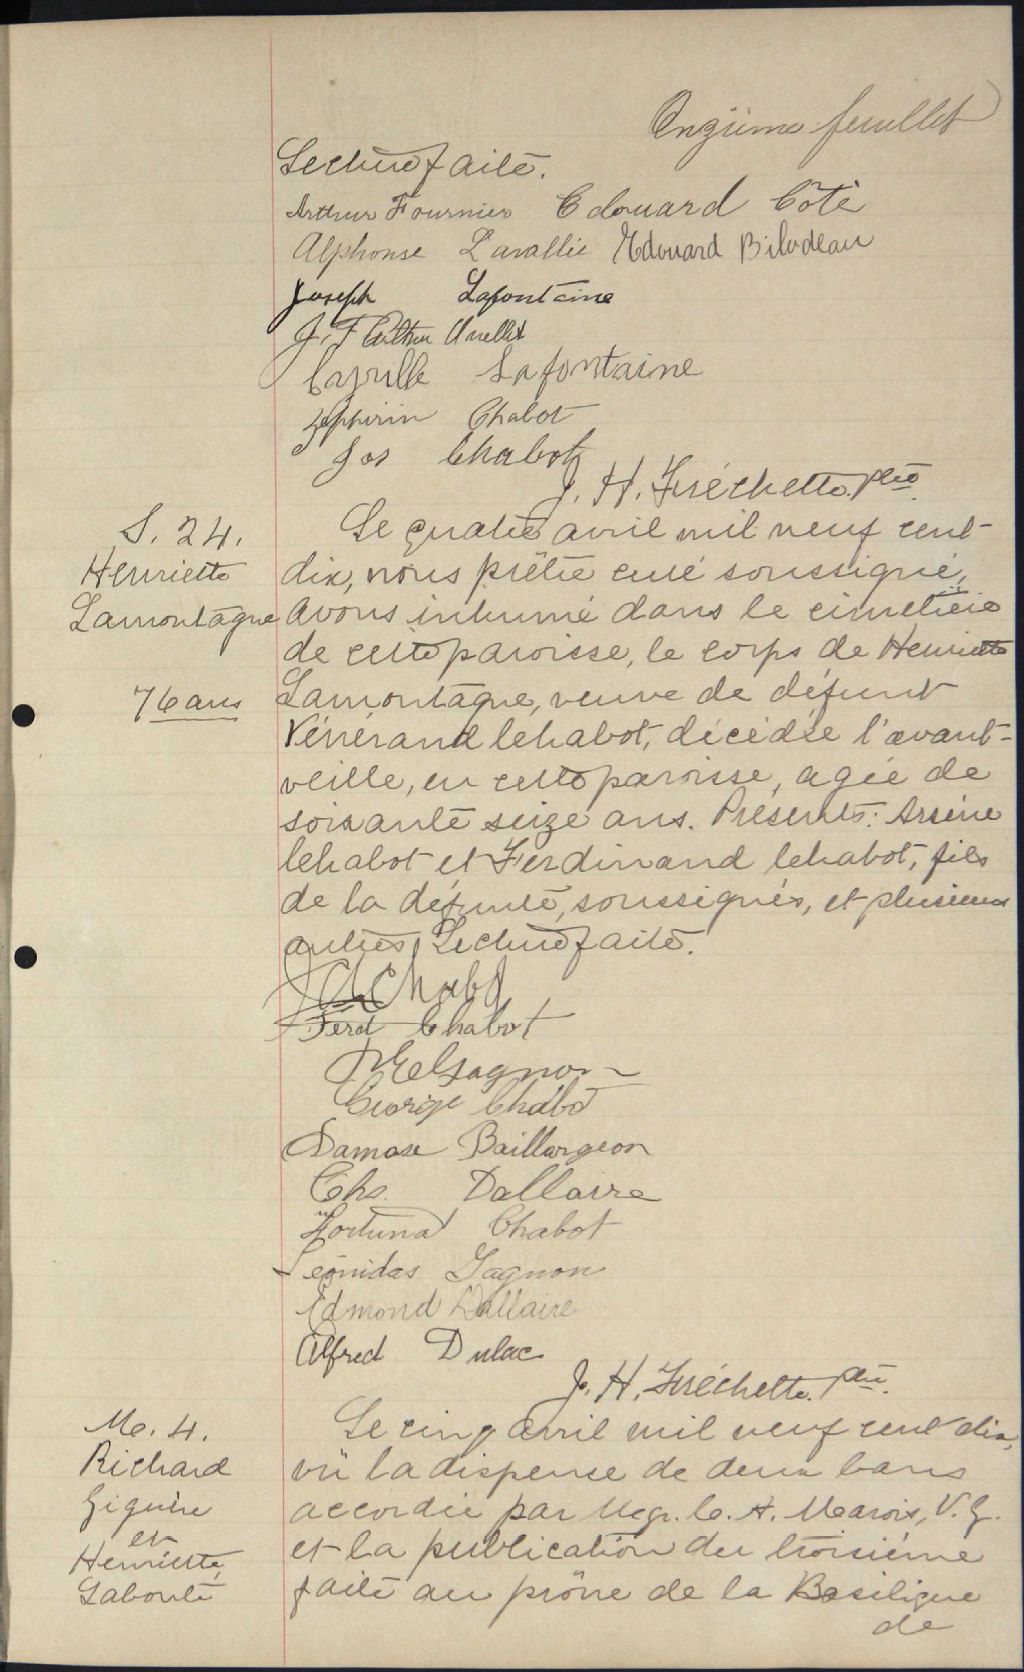 Onzième feuillet
Lecture faite.
Arthur Fournier Edouard Côté
Alphonse Lavallée Edouard Bilodeau
Joseph Lafontaine
J. F. Arthur Ouellet
Cyrille Lafontaine
Zéphirin Chabot
Jos Chabot
J. H. Fréchette. ptre.
S. 24.
Henriette
Lamontagne
76 ans
Le quatre avril mil neuf cent
dix, nous prêtre curé soussigné,
avons inhumé dans le cimetière
de cette paroisse, le corps de Henriette
Lamontagne, veuve de défunt
Vénérand Chabot, décédée l'avant-
veille, en cette paroisse, agée de
soixante seize ans. Présents: Arsène
Chabot et Ferdinand Chabot, fils
de la défunte, soussignés, et plusieurs
autres. Lecture faite.
A Chabot
Ferd Chabot
Gagnon
George Chabot
Damase Baillargeon
Chs. Dallaire
Fortunat Chabot
Léonidas Gagnon
Edmond Dallaire
Alfred Dulac
J. H. Fréchette. ptre.
M. 4.
Richard
Giguère
et
Henriette
Labonté
Le cinq avril mil neuf cent dix,
vû la dispense de deux bans
accordée par Mgr. C. A. Marois, V. G.
et la publication du troisième
faite au prône de la Basilique
de